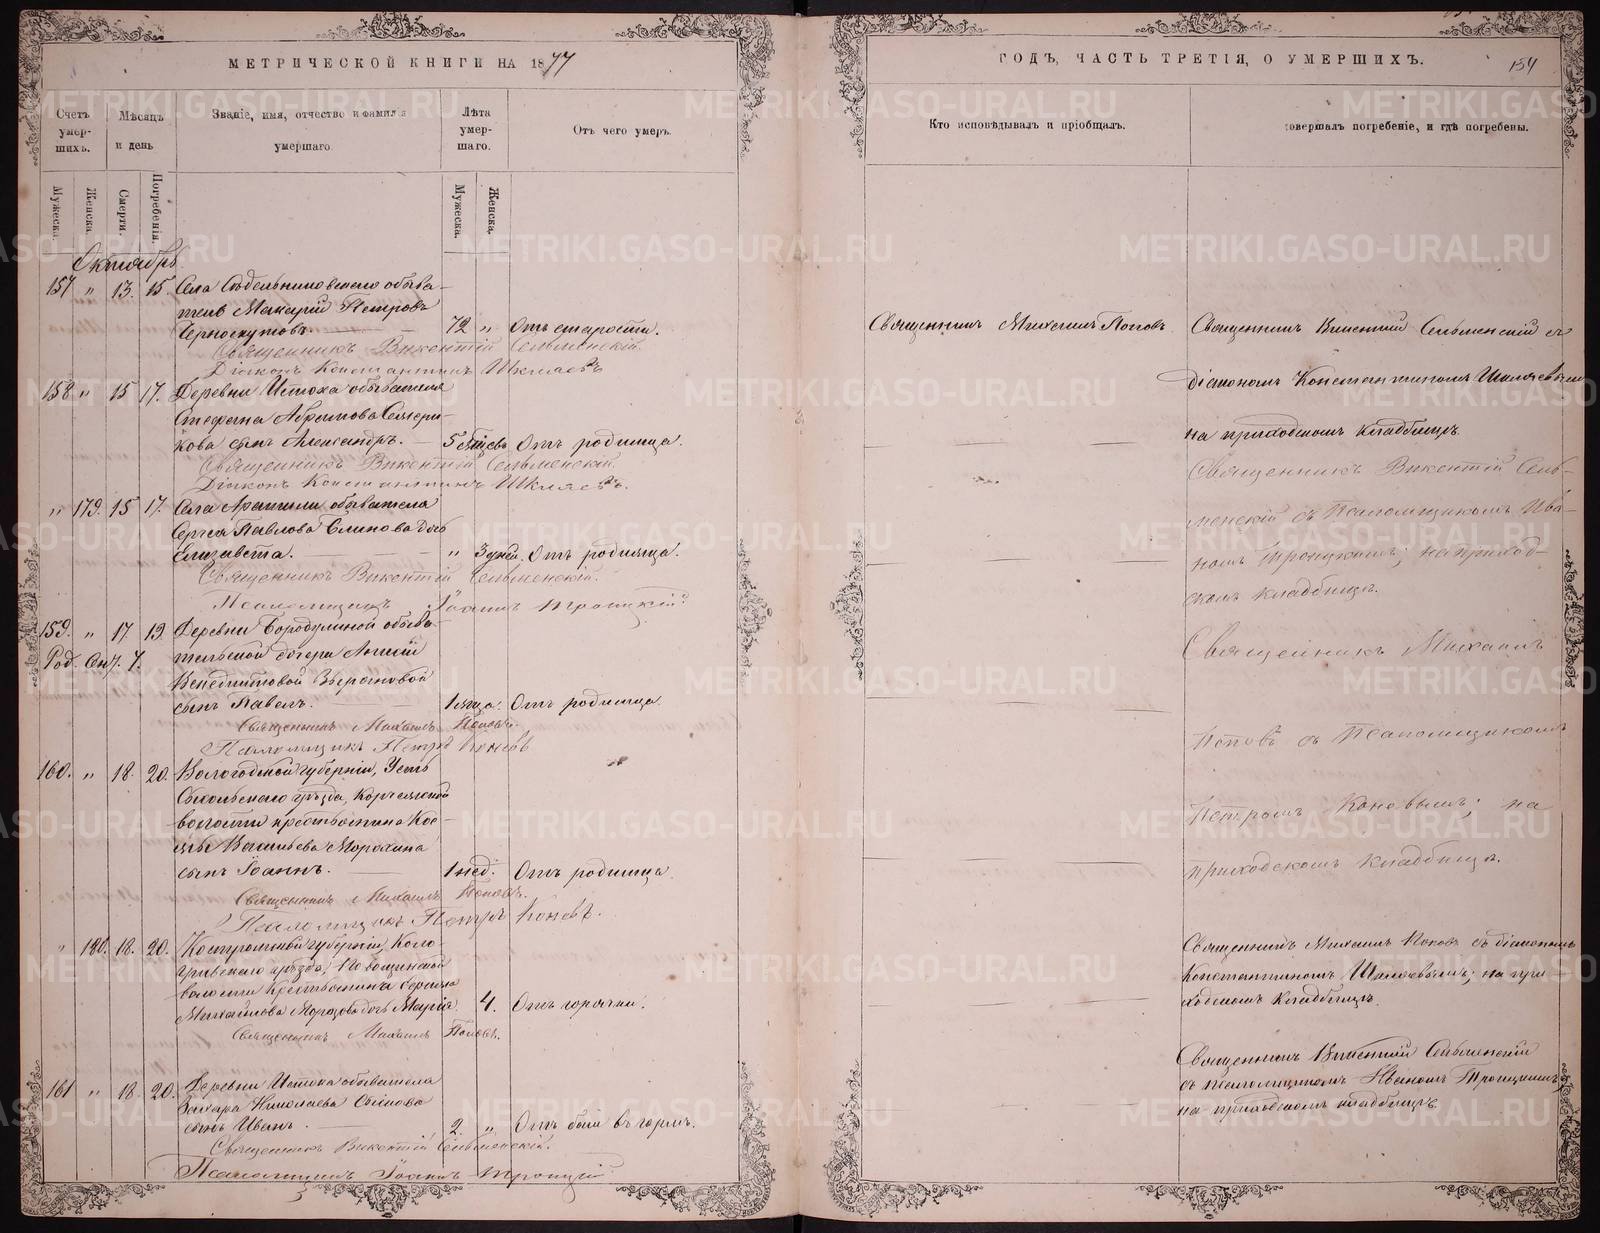 МЕТРИЧЕСКОЙ КНИГИ НА 1877
Счетъ умер-шихъ.
Мѣсяцъ и день
Званіе, имя, отчество и фамилія умершаго.
Лѣта умер-шаго.
Отъ чего умеръ.
Мужеска.
Женска.
Смерти.
Погребенія.
Мужеска.
Женска.
Октябрь
157 " 13. 15. Села обыва-
тель Макарій Петровъ
Черноскутовъ. 72 " Отъ старости.
Священникъ Викентій Сельменскій.
Діаконъ Константинъ Шкляевъ
158 " 15 17. Деревни Истока обывателя
Стефана Абрамова
кова сынъ Александръ. — 5 Отъ родимца.
Священникъ Викентій Сельменскій.
Діаконъ Константинъ Шкляевъ.
" 179. 15 17. Села Арамили обывателя
Сергія Павлова Блинова дочь
Елизавета. " 3 дней. Отъ родимца.
Священникъ Викентій Сельменскій.
Псаломщикъ Іоаннъ Троицкій
159. " 17. 19. Деревни Бородулиной обыва-
Род. Сен. 7. тельской дочери
сынъ Павелъ. 1 мѣсца. Отъ родимца.
Священникъ Михаилъ Поповъ.
Псаломщикъ Петръ Коневъ
160. " 18. 20. Вологодской губерніи, Усть
Сысольскаго уѣзда,
волости крестьянина Кос-
мы Васильева Морохина
сынъ Іоаннъ. 1 нед. Отъ родимца.
Священникъ Михаилъ Поповъ.
Псаломщикъ Петръ Коневъ.
" 180. 18. 20. Костромской губерніи, Коло-
гривскаго уѣзда,
волости крестьянина
Михайлова Морозова дочь Марія 4. Отъ горячки.
Священникъ Михаилъ Поповъ.
161 " 18. 20. Деревни Истока обывателя
Захара Николаева
сынъ Иванъ. 2. " Отъ боли въ горлѣ.
Священникъ Викентій Сельменскій.
Псаломщикъ Іоаннъ Троицкій
ГОДЪ, ЧАСТЬ ТРЕТІЯ, О УМЕРШИХЪ.
154
Кто исповѣдывалъ и пріобщалъ.
совершалъ погребеніе, и гдѣ погребены.
Священникъ Михаилъ Поповъ
Священникъ Викентій Сельменскій съ
діакономъ Константиномъ Шкляевымъ
на приходскомъ кладбищѣ.
Священникъ Викентій Сель-
менскій съ Псаломщикомъ Ива-
номъ Троицкимъ; на приход-
скомъ кладбищѣ.
Священникъ Михаилъ
Поповъ съ Псаломщикомъ
Петромъ Коневымъ; на
приходскомъ кладбищѣ.
Священникъ Михаилъ Поповъ съ діакономъ
Константиномъ Шкляевымъ; на при-
ходскомъ кладбищѣ.
Священникъ Викентій Сельменскій
съ псаломщикомъ Иваномъ Троицкимъ
на приходскомъ кладбищѣ.
METRIKI.GASO-URAL.RU